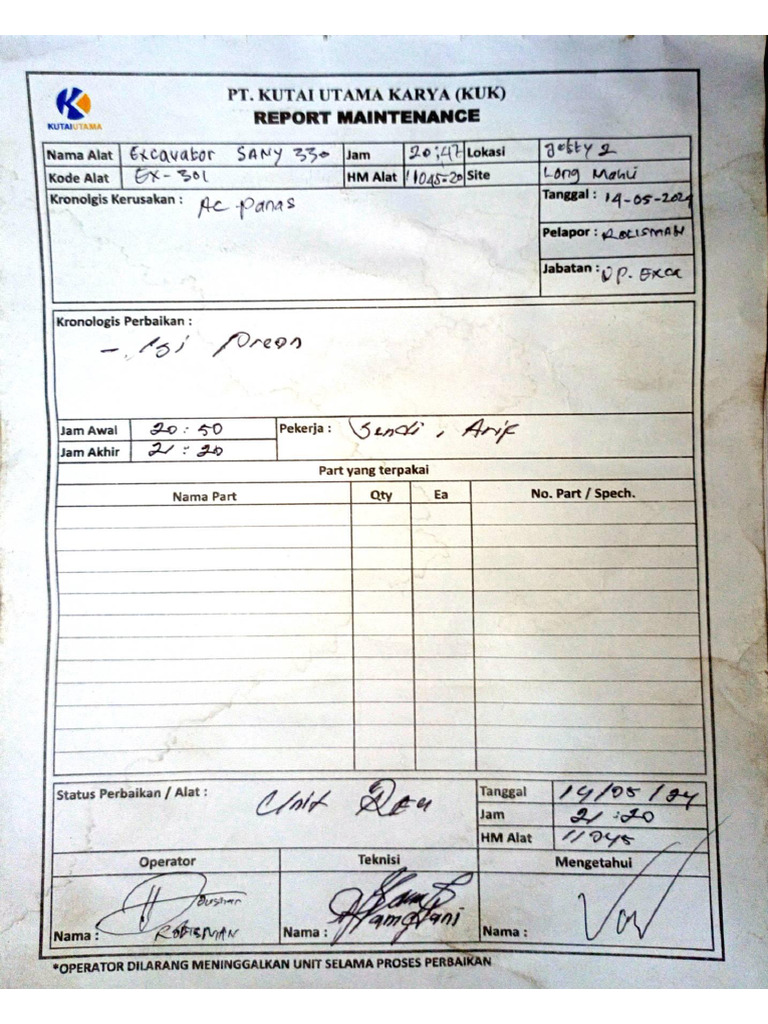 KUTAIUTAMA
PT. KUTAI UTAMA KARYA (KUK)
REPORT MAINTENANCE
Nama Alat Excavator SANY 330 Jam 20:47 Lokasi Jetty 2
Kode Alat EX-301 HM Alat 11045-20 Site Long Mahli
Kronolgis Kerusakan : AC panas
Tanggal : 14-05-2024
Pelapor : ROLISMAN
Jabatan : OP. Exca
Kronologis Perbaikan :
- Isi preon
Jam Awal 20:50 Pekerja : Sendi, Arif
Jam Akhir 21:20
Part yang terpakai
Nama Part Qty Ea No. Part / Spech.
Status Perbaikan / Alat : Unit
Tanggal 14/05/24
Jam 21:20
HM Alat 11045
Operator Teknisi Mengetahui
Nama : ROLISMAN Nama : Nama :
*OPERATOR DILARANG MENINGGALKAN UNIT SELAMA PROSES PERBAIKAN